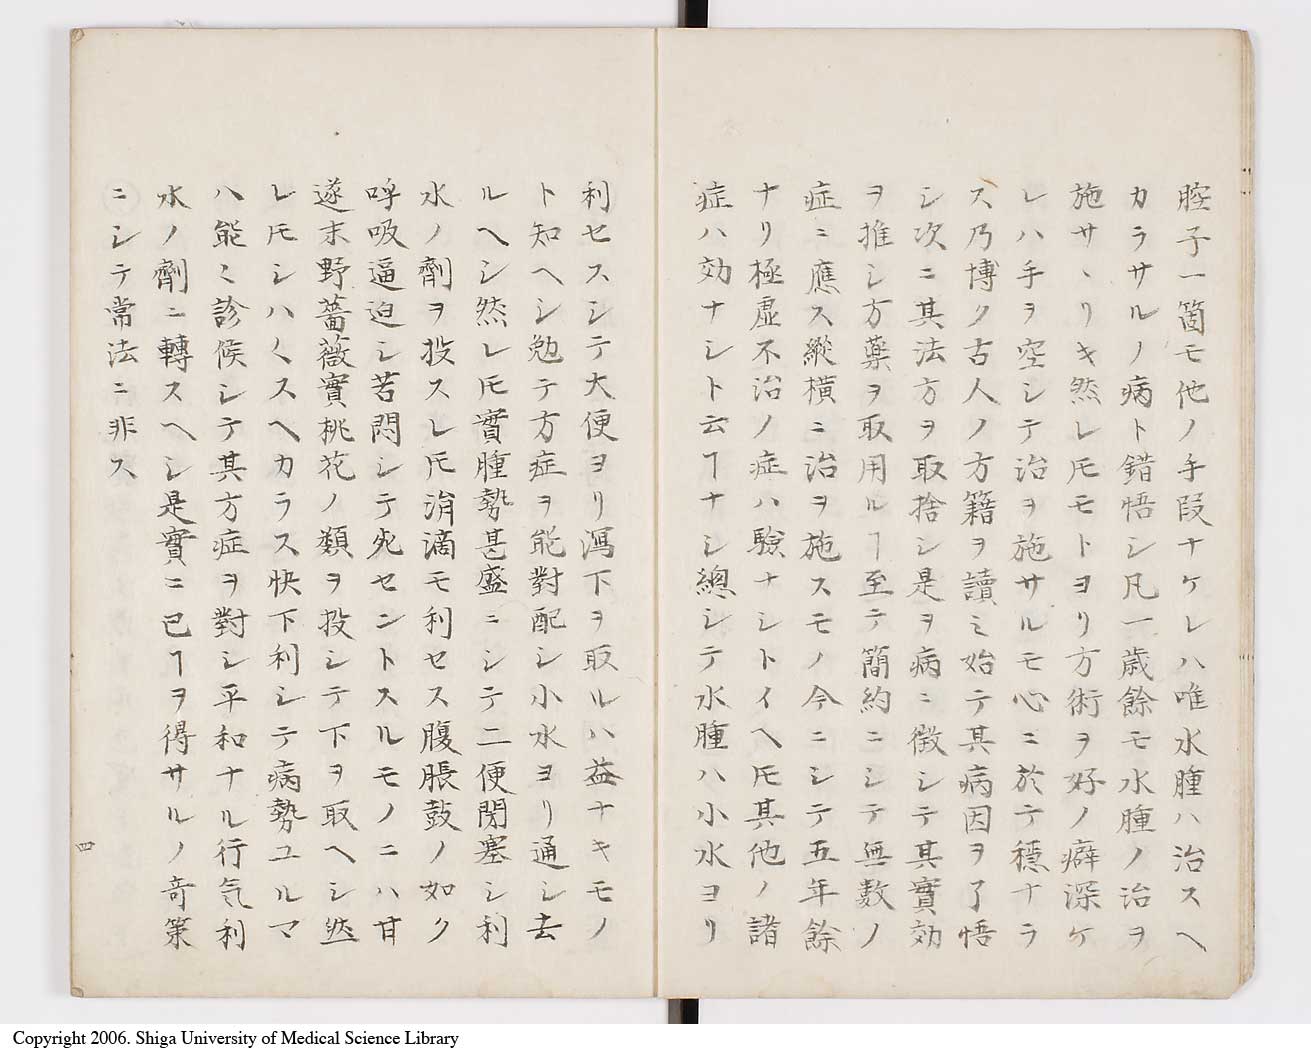 腔子一箇モ他ノ手段ナケレハ唯水腫ハ治スヘ
カラサルノ病ト錯悟シ凡一歳餘モ水腫ノ治ヲ
施サヽリキ然レ𪜈モトヨリ方術ヲ好ノ癖深ケ
レハ手ヲ空シテ治ヲ施サルモ心ニ於テ穏ナラ
ス乃博ク古人ノ方籍ヲ讀ミ始テ其病因ヲ了悟
シ次ニ其法方ヲ取捨シ是ヲ病ニ徴シテ其實効
ヲ推シ方藥ヲ取用ルヿ至テ簡約ニシテ無数ノ
症ニ應ス縱横ニ治ヲ施スモノ今ニシテ五年餘
ナリ極虚不治ノ症ハ驗ナシトイヘ𪜈其他ノ諸
症ハ効ナシト云ヿナシ總シテ水腫ハ小水ヨリ
利セスシテ大便ヨリ瀉下ヲ取ルハ益ナキモノ
ト知ヘシ勉テ方症ヲ能對配シ小水ヨリ通シ去
ルヘシ然レ𪜈實腫勢甚盛ニシテ二便閉塞シ利
水ノ劑ヲ投スレ𪜈消滴モ利セス腹脹鼓ノ如ク
呼吸逼迫シ苦悶シテ死セントスルモノニハ甘
遂末野薔薇實桃花ノ類ヲ投シテ下ヲ取ヘシ然
レ𪜈シハ〱スヘカラス快下利シテ病勢ユルマ
ハ能〻診候シテ其方症ヲ對シ平和ナル行気利
水ノ劑ニ轉スヘシ是實ニ已ヿヲ得サルノ奇策
ニシテ常法ニ非ス
四
Copyright 2006. Shiga University of Medical Science Library